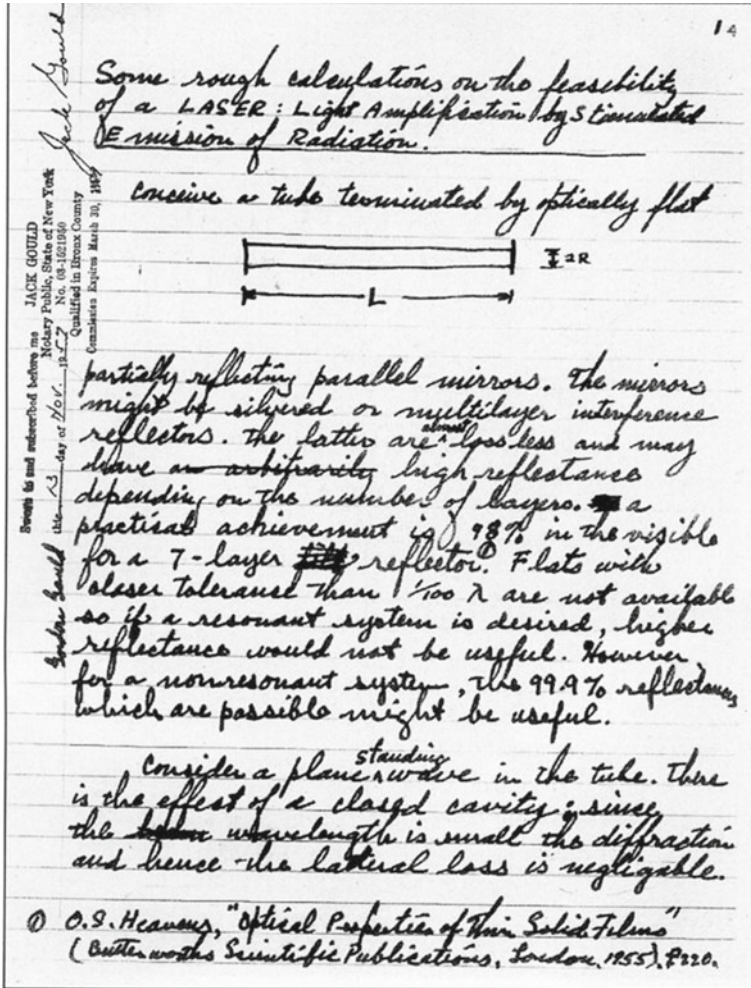 14
Some rough calculations on the feasibility
of a LASER: Light Amplification by Stimulated
Emission of Radiation.
conceive a tube terminated by optically flat
2R
L
partially reflecting parallel mirrors. The mirrors
might be silvered or multilayer interference
reflectors. The latter are almost lossless and may
have an arbitrarily high reflectance
depending on the number of layers. a
practical achievement is 98% in the visible
for a 7-layer reflector.① Flats with
closer tolerance than 1/100 λ are not available
so if a resonant system is desired, higher
reflectance would not be useful. However,
for a nonresonant system, the 99.9% reflectances
which are possible might be useful.
Consider a plane standing wave in the tube. There
is the effect of a closed cavity; since
the wavelength is small the diffraction
and hence the lateral loss is negligable.
① O.S. Heavens, "Optical Properties of Thin Solid Films"
(Butterworths Scientific Publications, London, 1955), P220.
Sworn to and subscribed before me
this 13 day of Nov. 1957
Gordon Gould
JACK GOULD
Notary Public, State of New York
No. 03-1521950
Qualified in Bronx County
Commission Expires March 30, 1959
Jack Gould